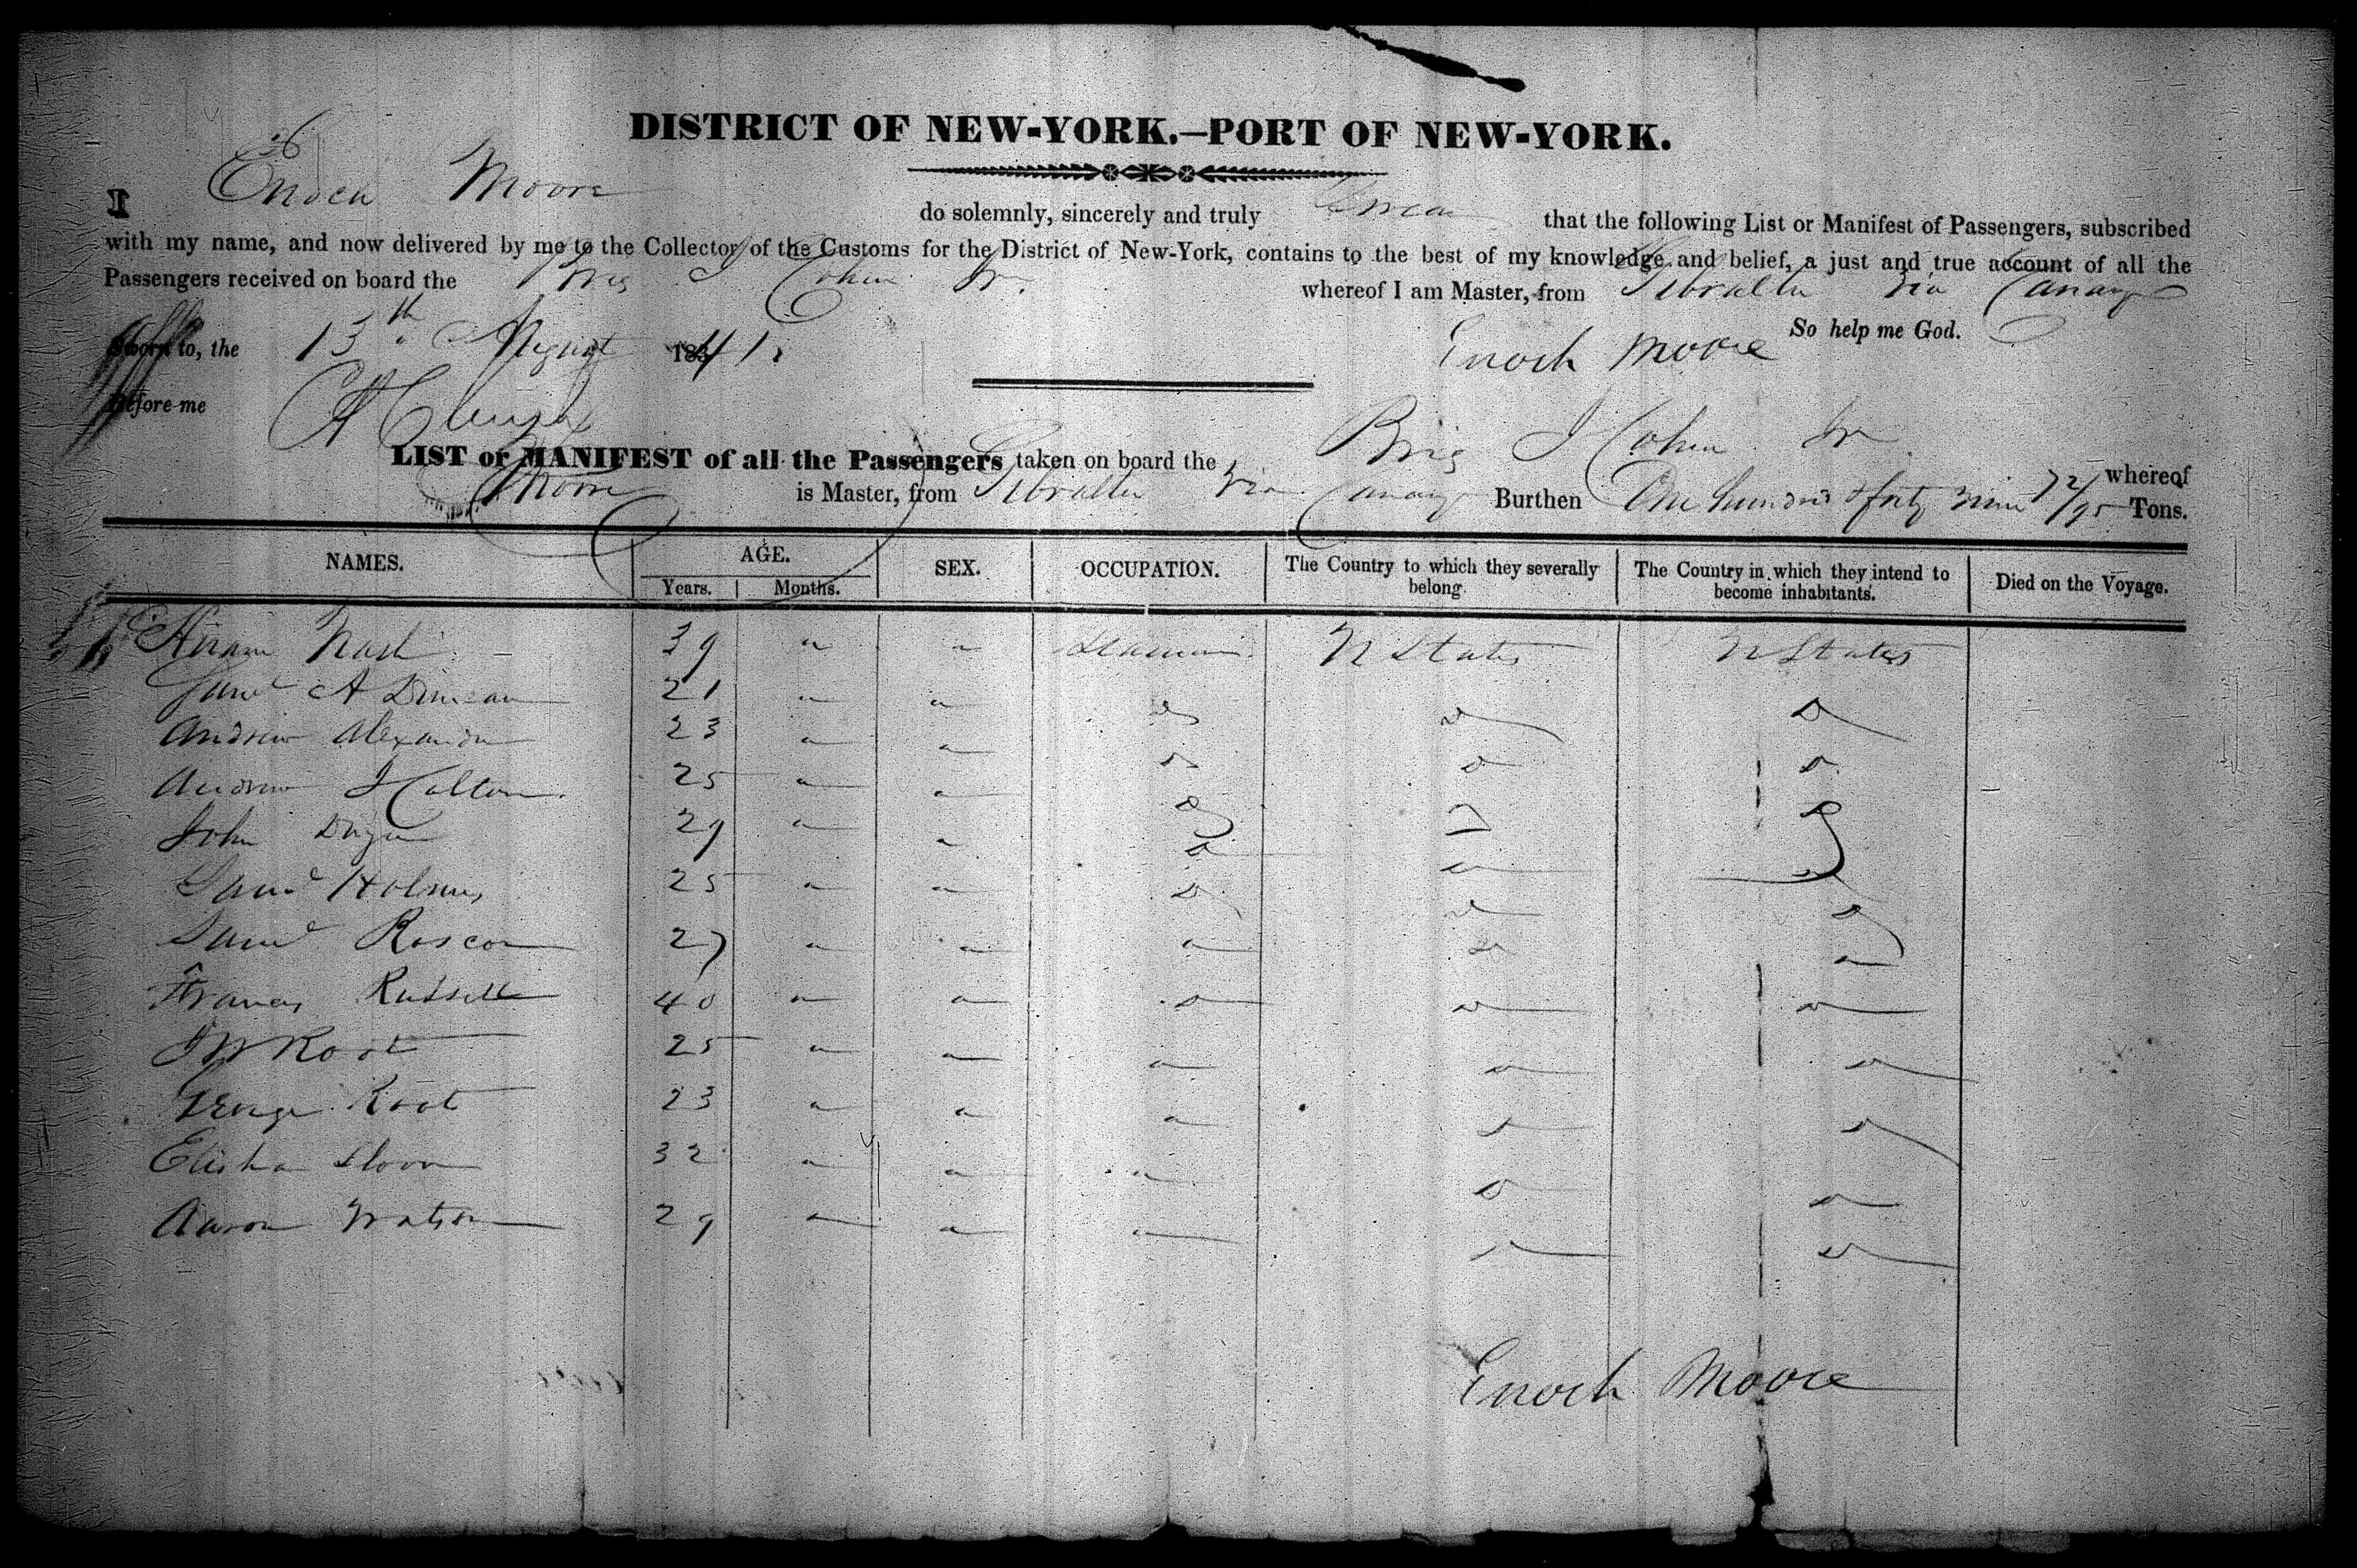 DISTRICT OF NEW-YORK.—PORT OF NEW-YORK.
I Enoch Moore do solemnly, sincerely and truly Swear that the following List or Manifest of Passengers, subscribed
with my name, and now delivered by me to the Collector of the Customs for the District of New-York, contains to the best of my knowledge and belief, a just and true account of all the
Passengers received on board the Brig J Cohen Jr. whereof I am Master, from Gibralter via Canary
So help me God.
Sworn to, the 13th August 1841. Enoch Moore
Before me
LIST or MANIFEST of all the Passengers taken on board the Brig J Cohen Jr whereof
Moore is Master, from Gibralter via Canary Burthen One hundred & forty nine 72/95 Tons.
NAMES. AGE. SEX. OCCUPATION. The Country to which they severally belong. The Country in which they intend to become inhabitants. Died on the Voyage.
Years. Months.
Hiram Nash 39 " " Seaman U States U States
Saml A Duncan 21 " " do do do
Andrew Alexander 23 " " do do do
Andrew Colton 25 " " do do do
John 29 " " do do do
Saml Holmes 25 " " do do do
Saml Roscoe 27 " " do do do
Francis Russell 40 " " do do do
Root 25 " " do do do
George Root 23 " " do do do
Elisha 32 " " do do do
Aaron Watson 29 " " do do do
Enoch Moore